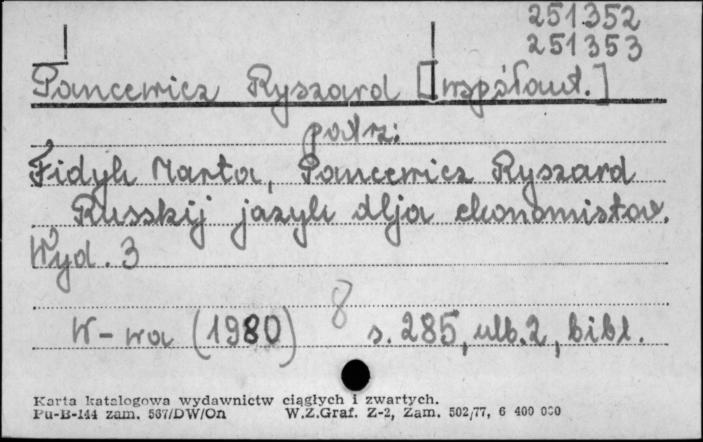 251352
251353
Pancewicz Ryszard [współaut.]
patrz:
Fidyk Marta, Pancewicz Ryszard
Russkij jazyk dlja ekonomistov.
Wyd. 3
W-wa (1980) 8 s. 285, ulb. 2, bibl.
Karta katalogowa wydawnictw ciągłych i zwartych.
Pu-B-144 zam. 567/DW/On W.Z.Graf. Z-2, Zam. 502/77, 6 400 000